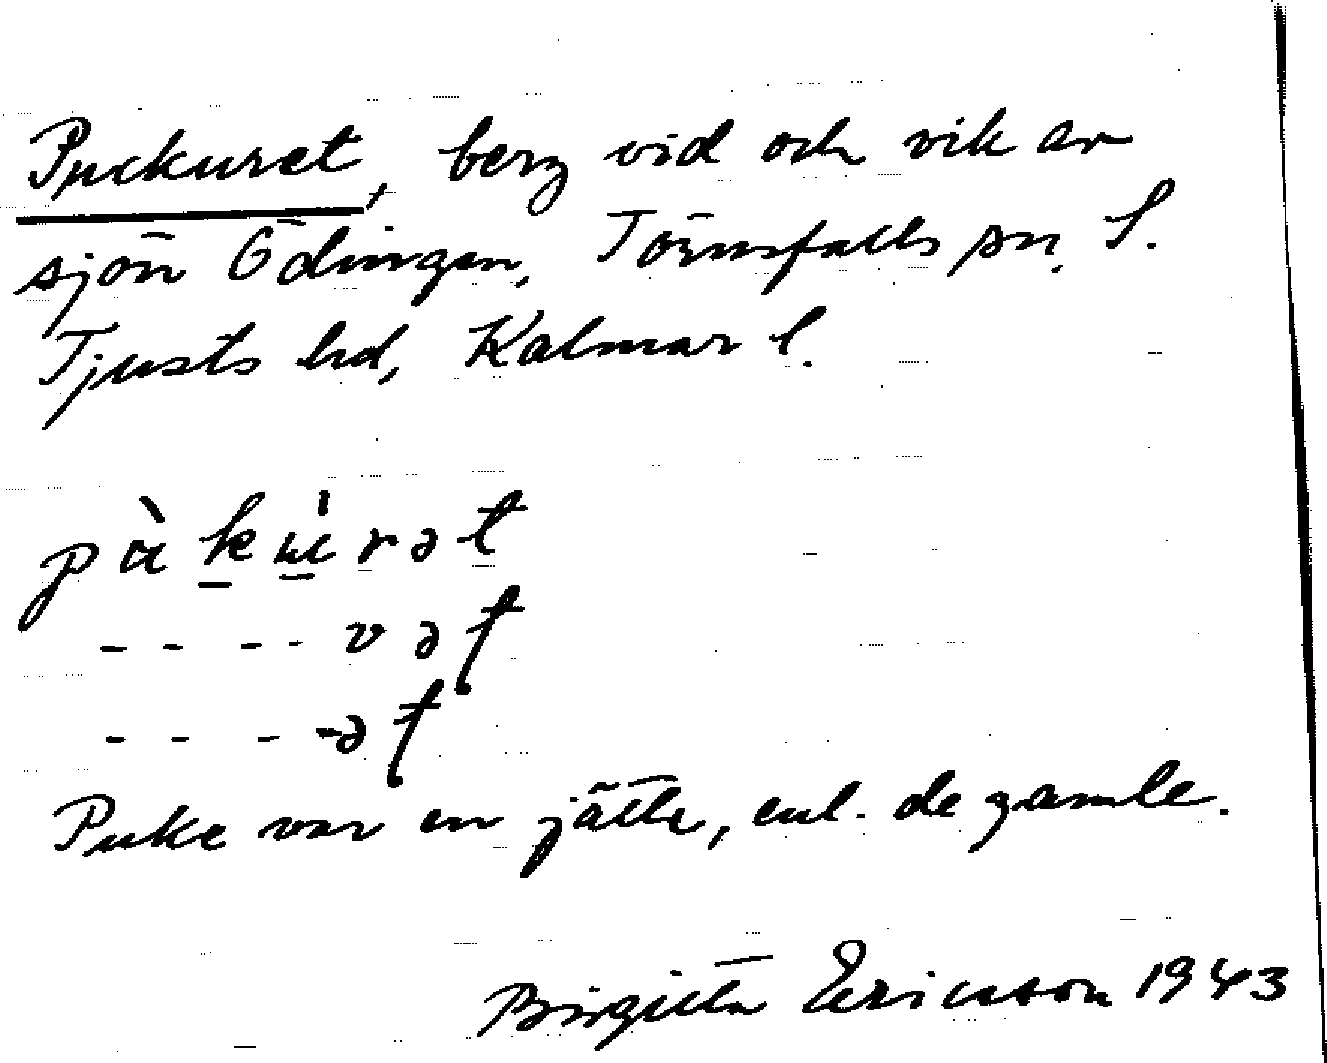 Puckuret, berg vid och vik av
sjön Ödingen, Törnsfalls sn, S.
Tjusts hd, Kalmar l.
Puke var en jätte, enl. de gamle.
Birgitta Ericsson 1943